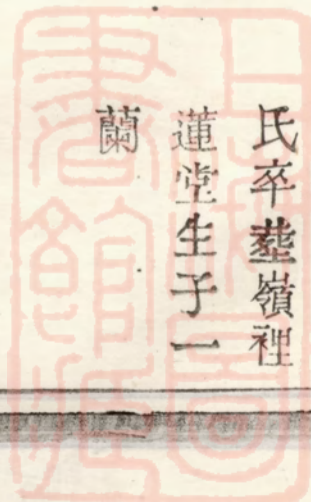 氏卒塟嶺裡
蓮堂生子一
蘭